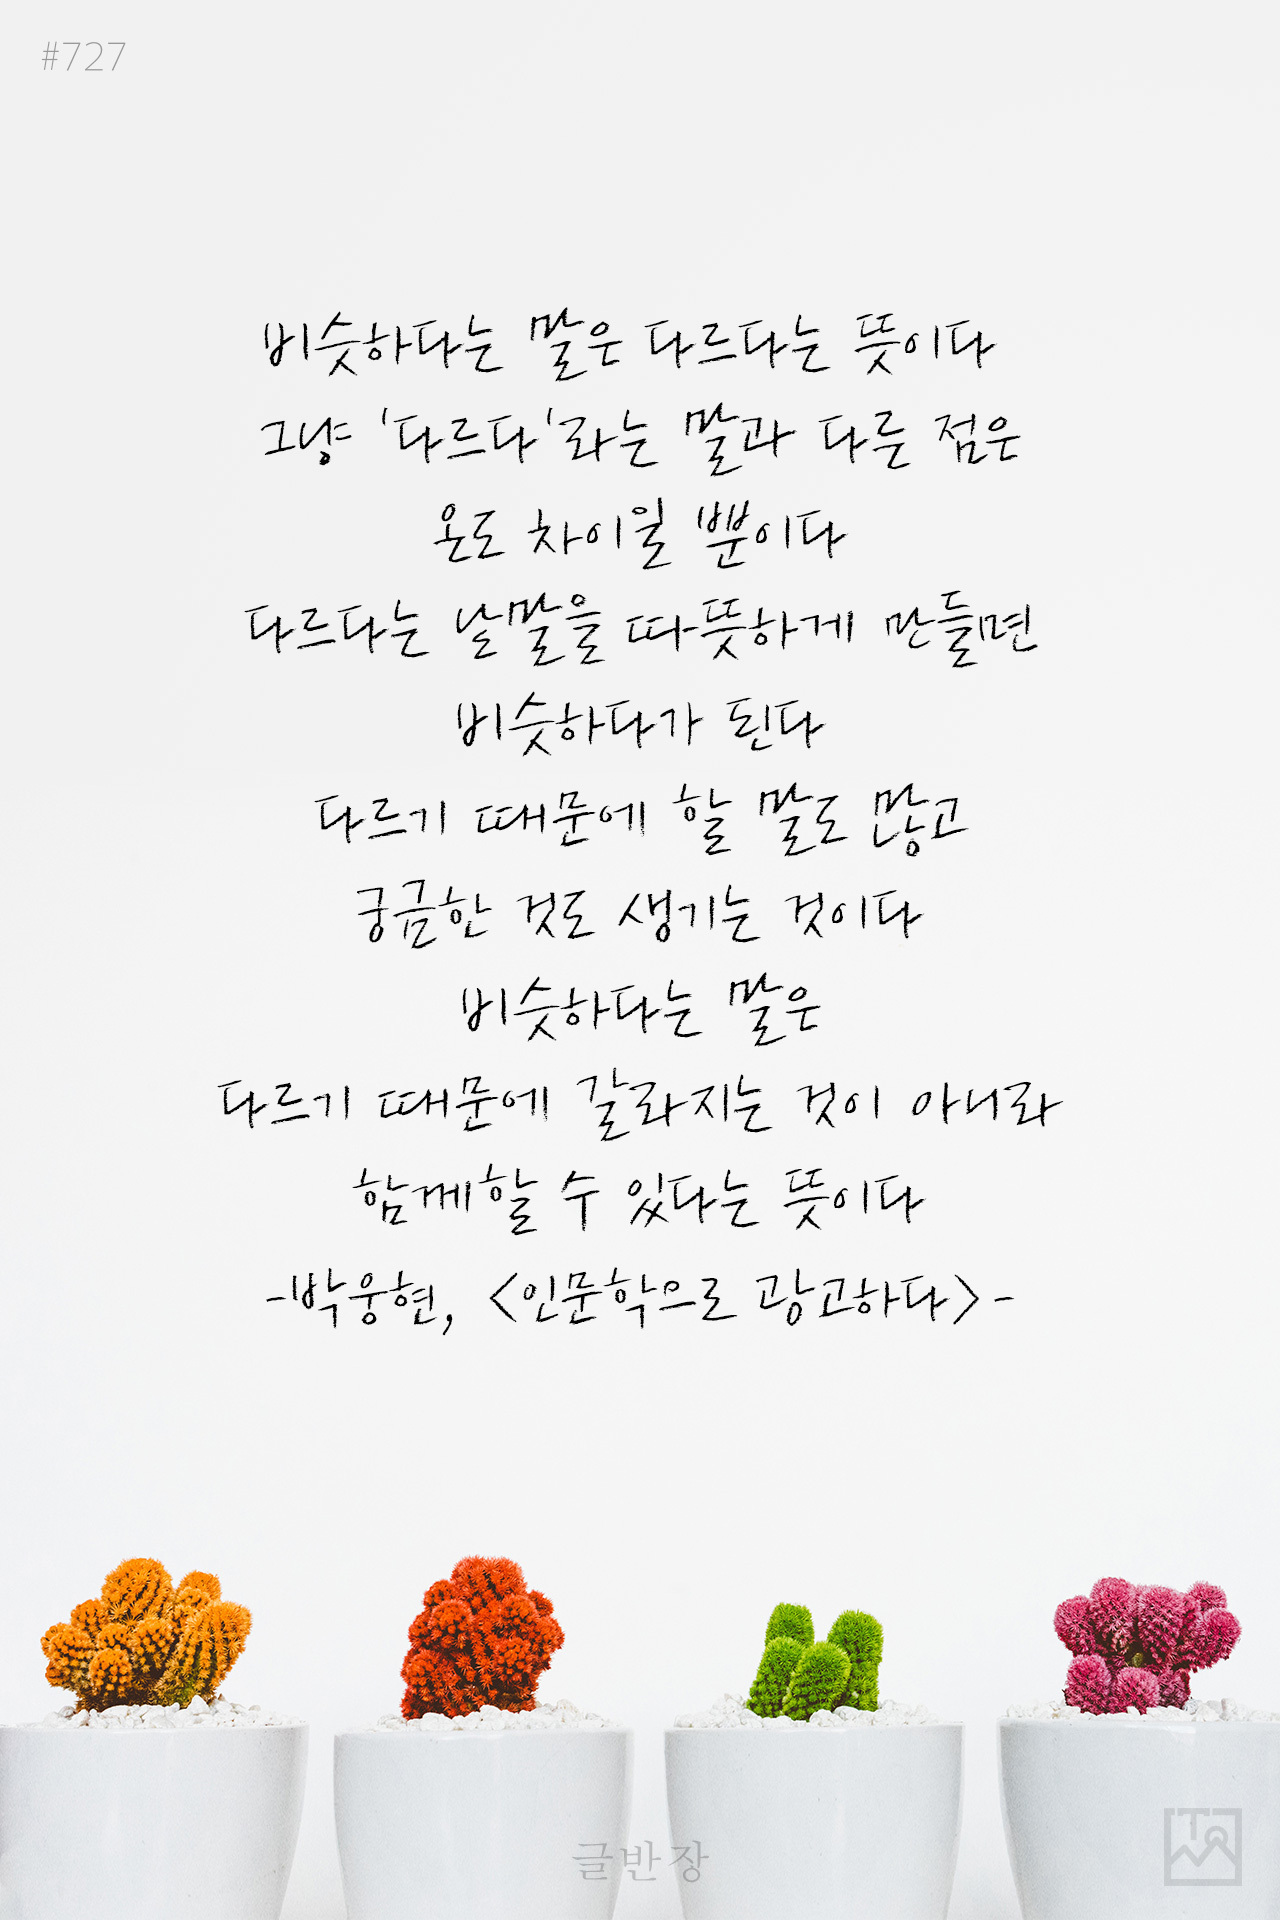 #727
비슷하다는 말은 다르다는 뜻이다
그냥 '다르다'라는 말과 다른 점은
온도 차이일 뿐이다
다르다는 낱말을 따뜻하게 만들면
비슷하다가 된다
다르기 때문에 할 말도 많고
궁금한 것도 생기는 것이다
비슷하다는 말은
다르기 때문에 갈라지는 것이 아니라
함께할 수 있다는 뜻이다
-박웅현, <인문학으로 광고하다>-
글반장